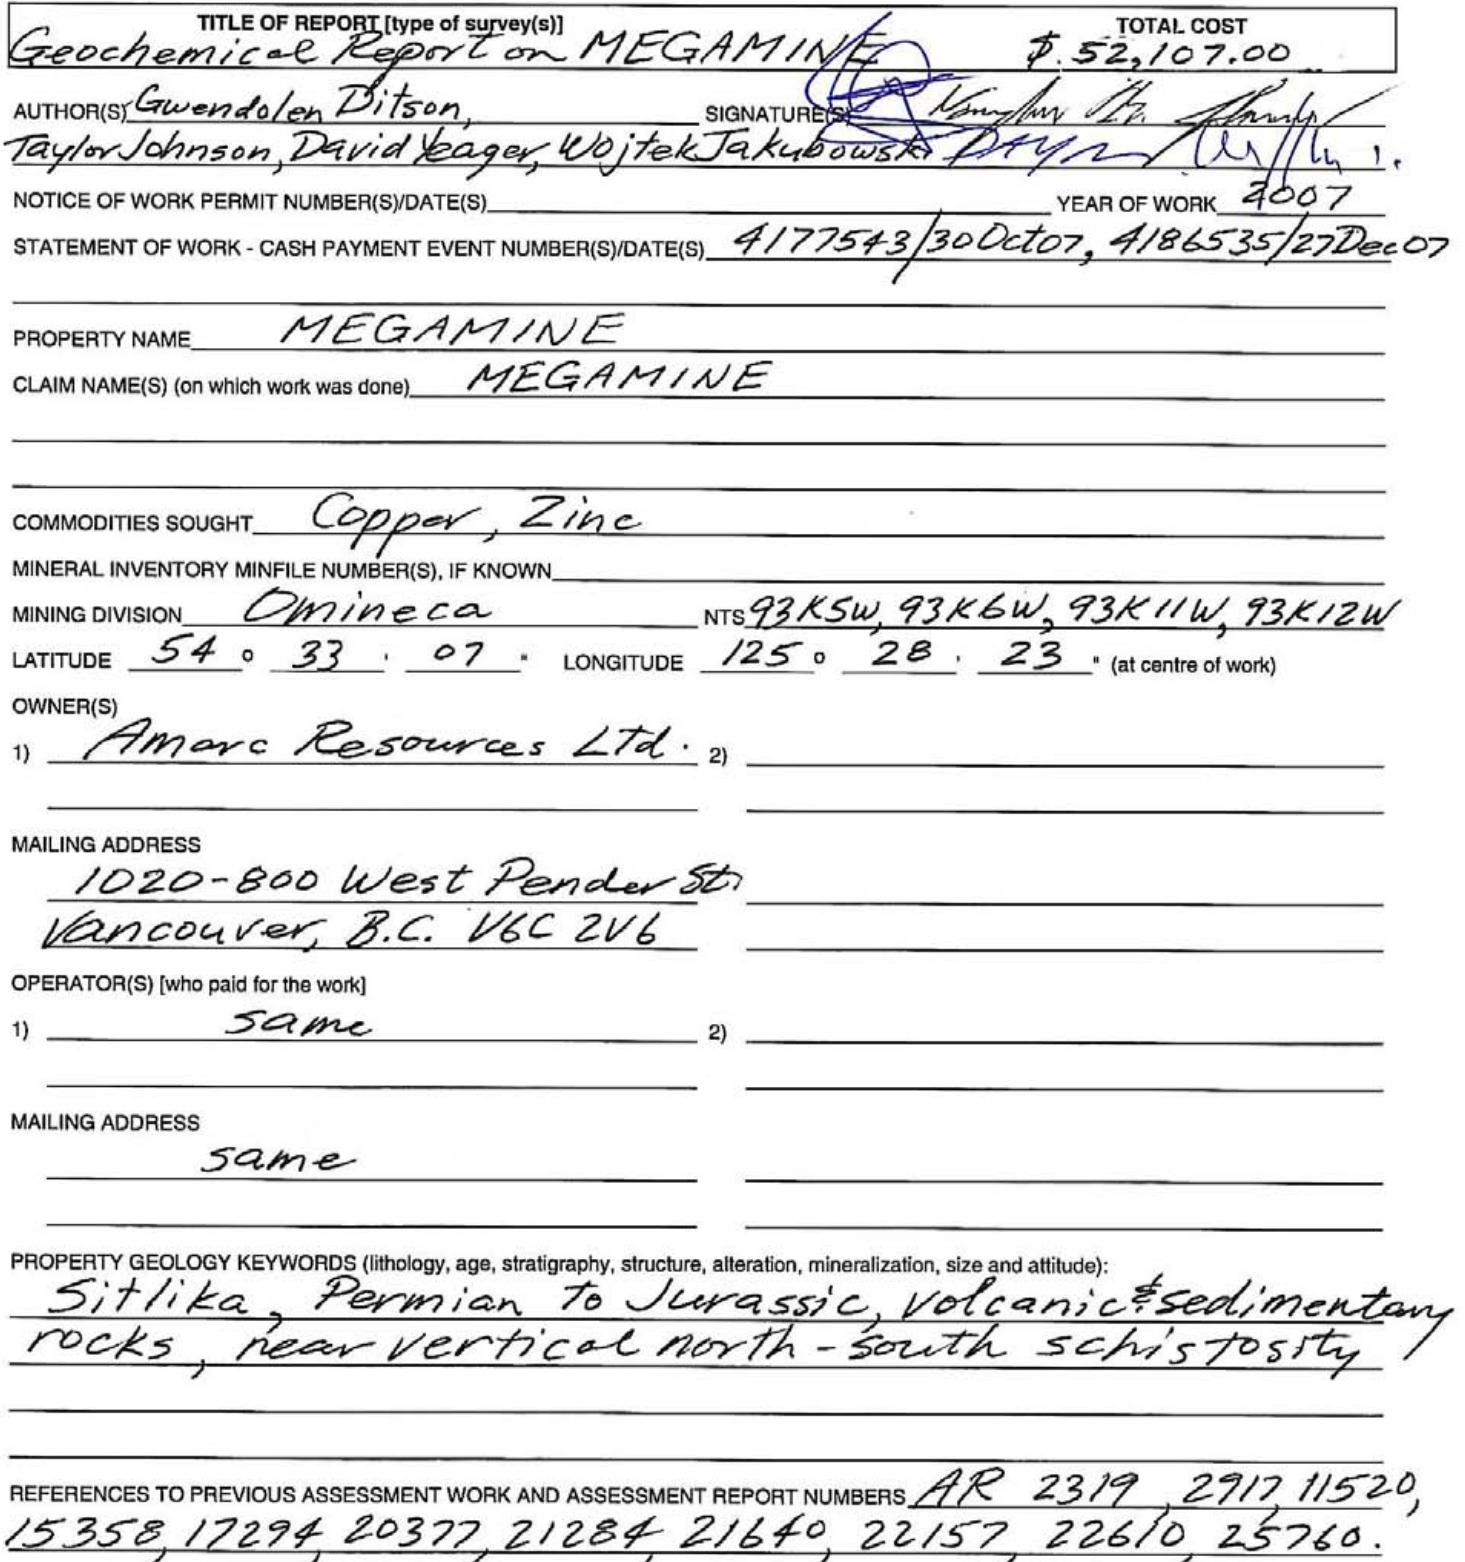 TITLE OF REPORT [type of survey(s)] TOTAL COST
Geochemical Report on MEGAMINE $.52,107.00
AUTHOR(S) Gwendolen Ditson, SIGNATURE(S)
Taylor Johnson, David Yeager, Wojtek Jakubowski
NOTICE OF WORK PERMIT NUMBER(S)/DATE(S) YEAR OF WORK 2007
STATEMENT OF WORK - CASH PAYMENT EVENT NUMBER(S)/DATE(S) 4177543/30Oct07, 4186535/27Dec07
PROPERTY NAME MEGAMINE
CLAIM NAME(S) (on which work was done) MEGAMINE
COMMODITIES SOUGHT Copper, Zinc
MINERAL INVENTORY MINFILE NUMBER(S), IF KNOWN
MINING DIVISION Omineca NTS 93K5W, 93K6W, 93K11W, 93K12W
LATITUDE 54 ° 33 ' 07 " LONGITUDE 125 ° 28 ' 23 " (at centre of work)
OWNER(S)
1) Amarc Resources Ltd. 2)
MAILING ADDRESS
1020-800 West Pender St.
Vancouver, B.C. V6C 2V6
OPERATOR(S) [who paid for the work]
1) same 2)
MAILING ADDRESS
same
PROPERTY GEOLOGY KEYWORDS (lithology, age, stratigraphy, structure, alteration, mineralization, size and attitude):
Sitlika, Permian to Jurassic, volcanic & sedimentary
rocks, near vertical north-south schistosity
REFERENCES TO PREVIOUS ASSESSMENT WORK AND ASSESSMENT REPORT NUMBERS AR 2319, 2917, 11520,
15358, 17294, 20377, 21284, 21640, 22157, 22610, 25760.